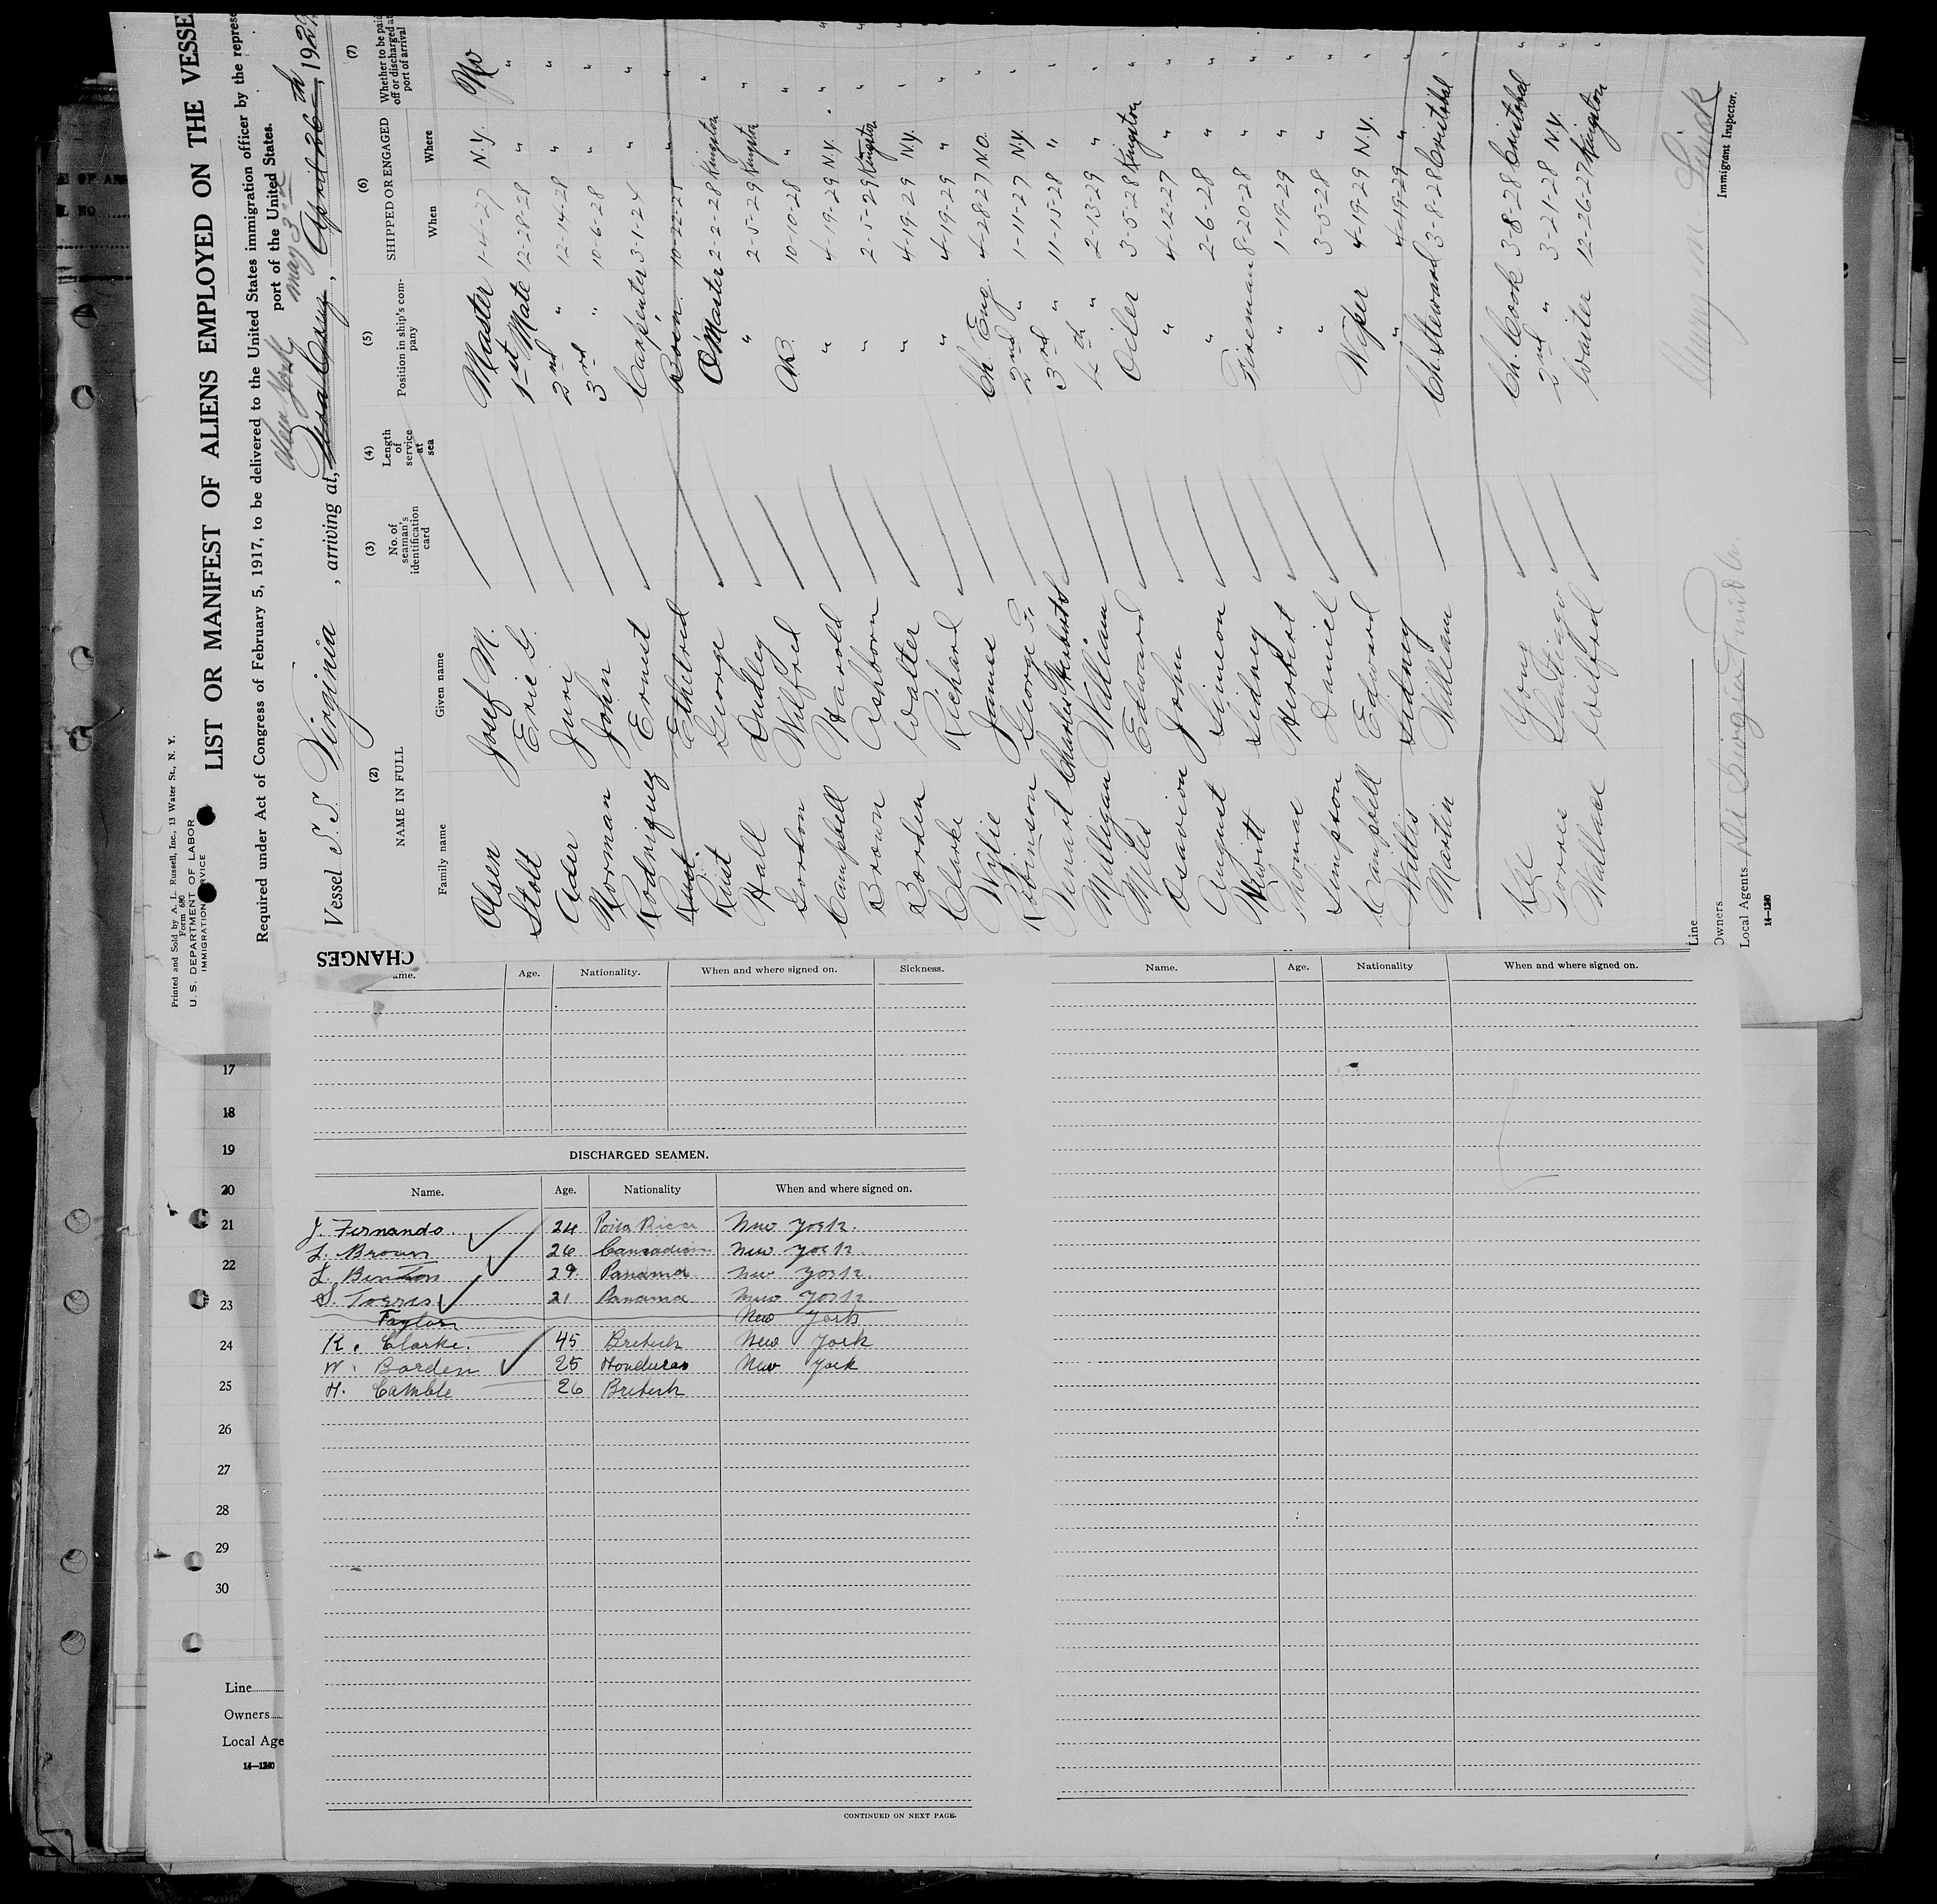 Printed and Sold by A. L. Russell, Inc., 13 Water St., N. Y.
Form 680
U. S. DEPARTMENT OF LABOR
IMMIGRATION SERVICE
LIST OR MANIFEST OF ALIENS EMPLOYED ON THE VESSE
Required under Act of Congress of February 5, 1917, to be delivered to the United States immigration officer by the represe
port of the United States.
New York May 3rd
Vessel S.S. Virginia, arriving at, Vera Cruz, April 26th, 1929
(2) (3) (4) (5) (6) (7)
NAME IN FULL No. of seaman's identification card Length of service at sea Position in ship's company SHIPPED OR ENGAGED Whether to be paid off or discharged at port of arrival
Family name Given name When Where
Olsen Josef M. Master 1-4-27 N.Y. No
Stolt Eric G. 1st Mate 12-28-28 " "
Ader Juri 2nd " 12-14-28 " "
Norman John 3rd " 10-6-28 " "
Rodriguez Ernest Carpenter 3-1-24 " "
Rust Ethelred "
Rust George Q Master 2-2-28 Kingston "
Hall Dudley " 2-5-29 Kingston "
Gordon Wilfred AB. 10-10-28 " "
Campbell Harold " 4-19-29 N.Y. "
Brown Ashborn " 2-5-29 Kingston "
Borden Walter " 4-19-29 N.Y. "
Clarke Richard " 4-19-29 " "
Wylie James Ch. Eng. 4-28-27 N.O. "
Robinson George F. 2nd " 1-11-27 N.Y. "
Charles 3rd " 11-15-28 " "
Milligan William 4th " 2-13-29 " "
Mild Edward Oiler 3-5-28 Kingston "
Osavion John " 4-12-27 " "
August Simeon " 2-6-28 " "
Hewitt Sidney Fireman 8-20-28 " "
Thomas Herbert " 1-19-29 " "
Simpson Daniel " 3-5-28 " "
Campbell Edward Wiper 4-19-29 N.Y. "
Willis Sidney " 4-19-29 " "
Martin William Ch. Steward 3-8-28 Cristobal "
Yong Ch. Cook 3-8-28 Cristobal "
Torres Santiago 2nd " 3-21-28 N.Y. "
Wallace Wilfred Waiter 12-26-27 Kingston "
Line
Owners
Local Agents
Immigrant Inspector.
14—1240
CHANGES
ame. Age. Nationality. When and where signed on. Sickness.
Name. Age. Nationality When and where signed on.
DISCHARGED SEAMEN.
Name. Age. Nationality When and where signed on.
J. Fernando 24 Porto Rico New York.
L. Brown 26 Canadian New York.
L. Benton 29 Panama New York.
S. Torres 21 Panama New York
Taylor New York
R. Clarke. 45 British New York
W. Borden 25 Honduras New York
H. Camble 26 British
CONTINUED ON NEXT PAGE.
17
18
19
20
21
22
23
24
25
26
27
28
29
30
Line
Owners
Local Age
14—1240